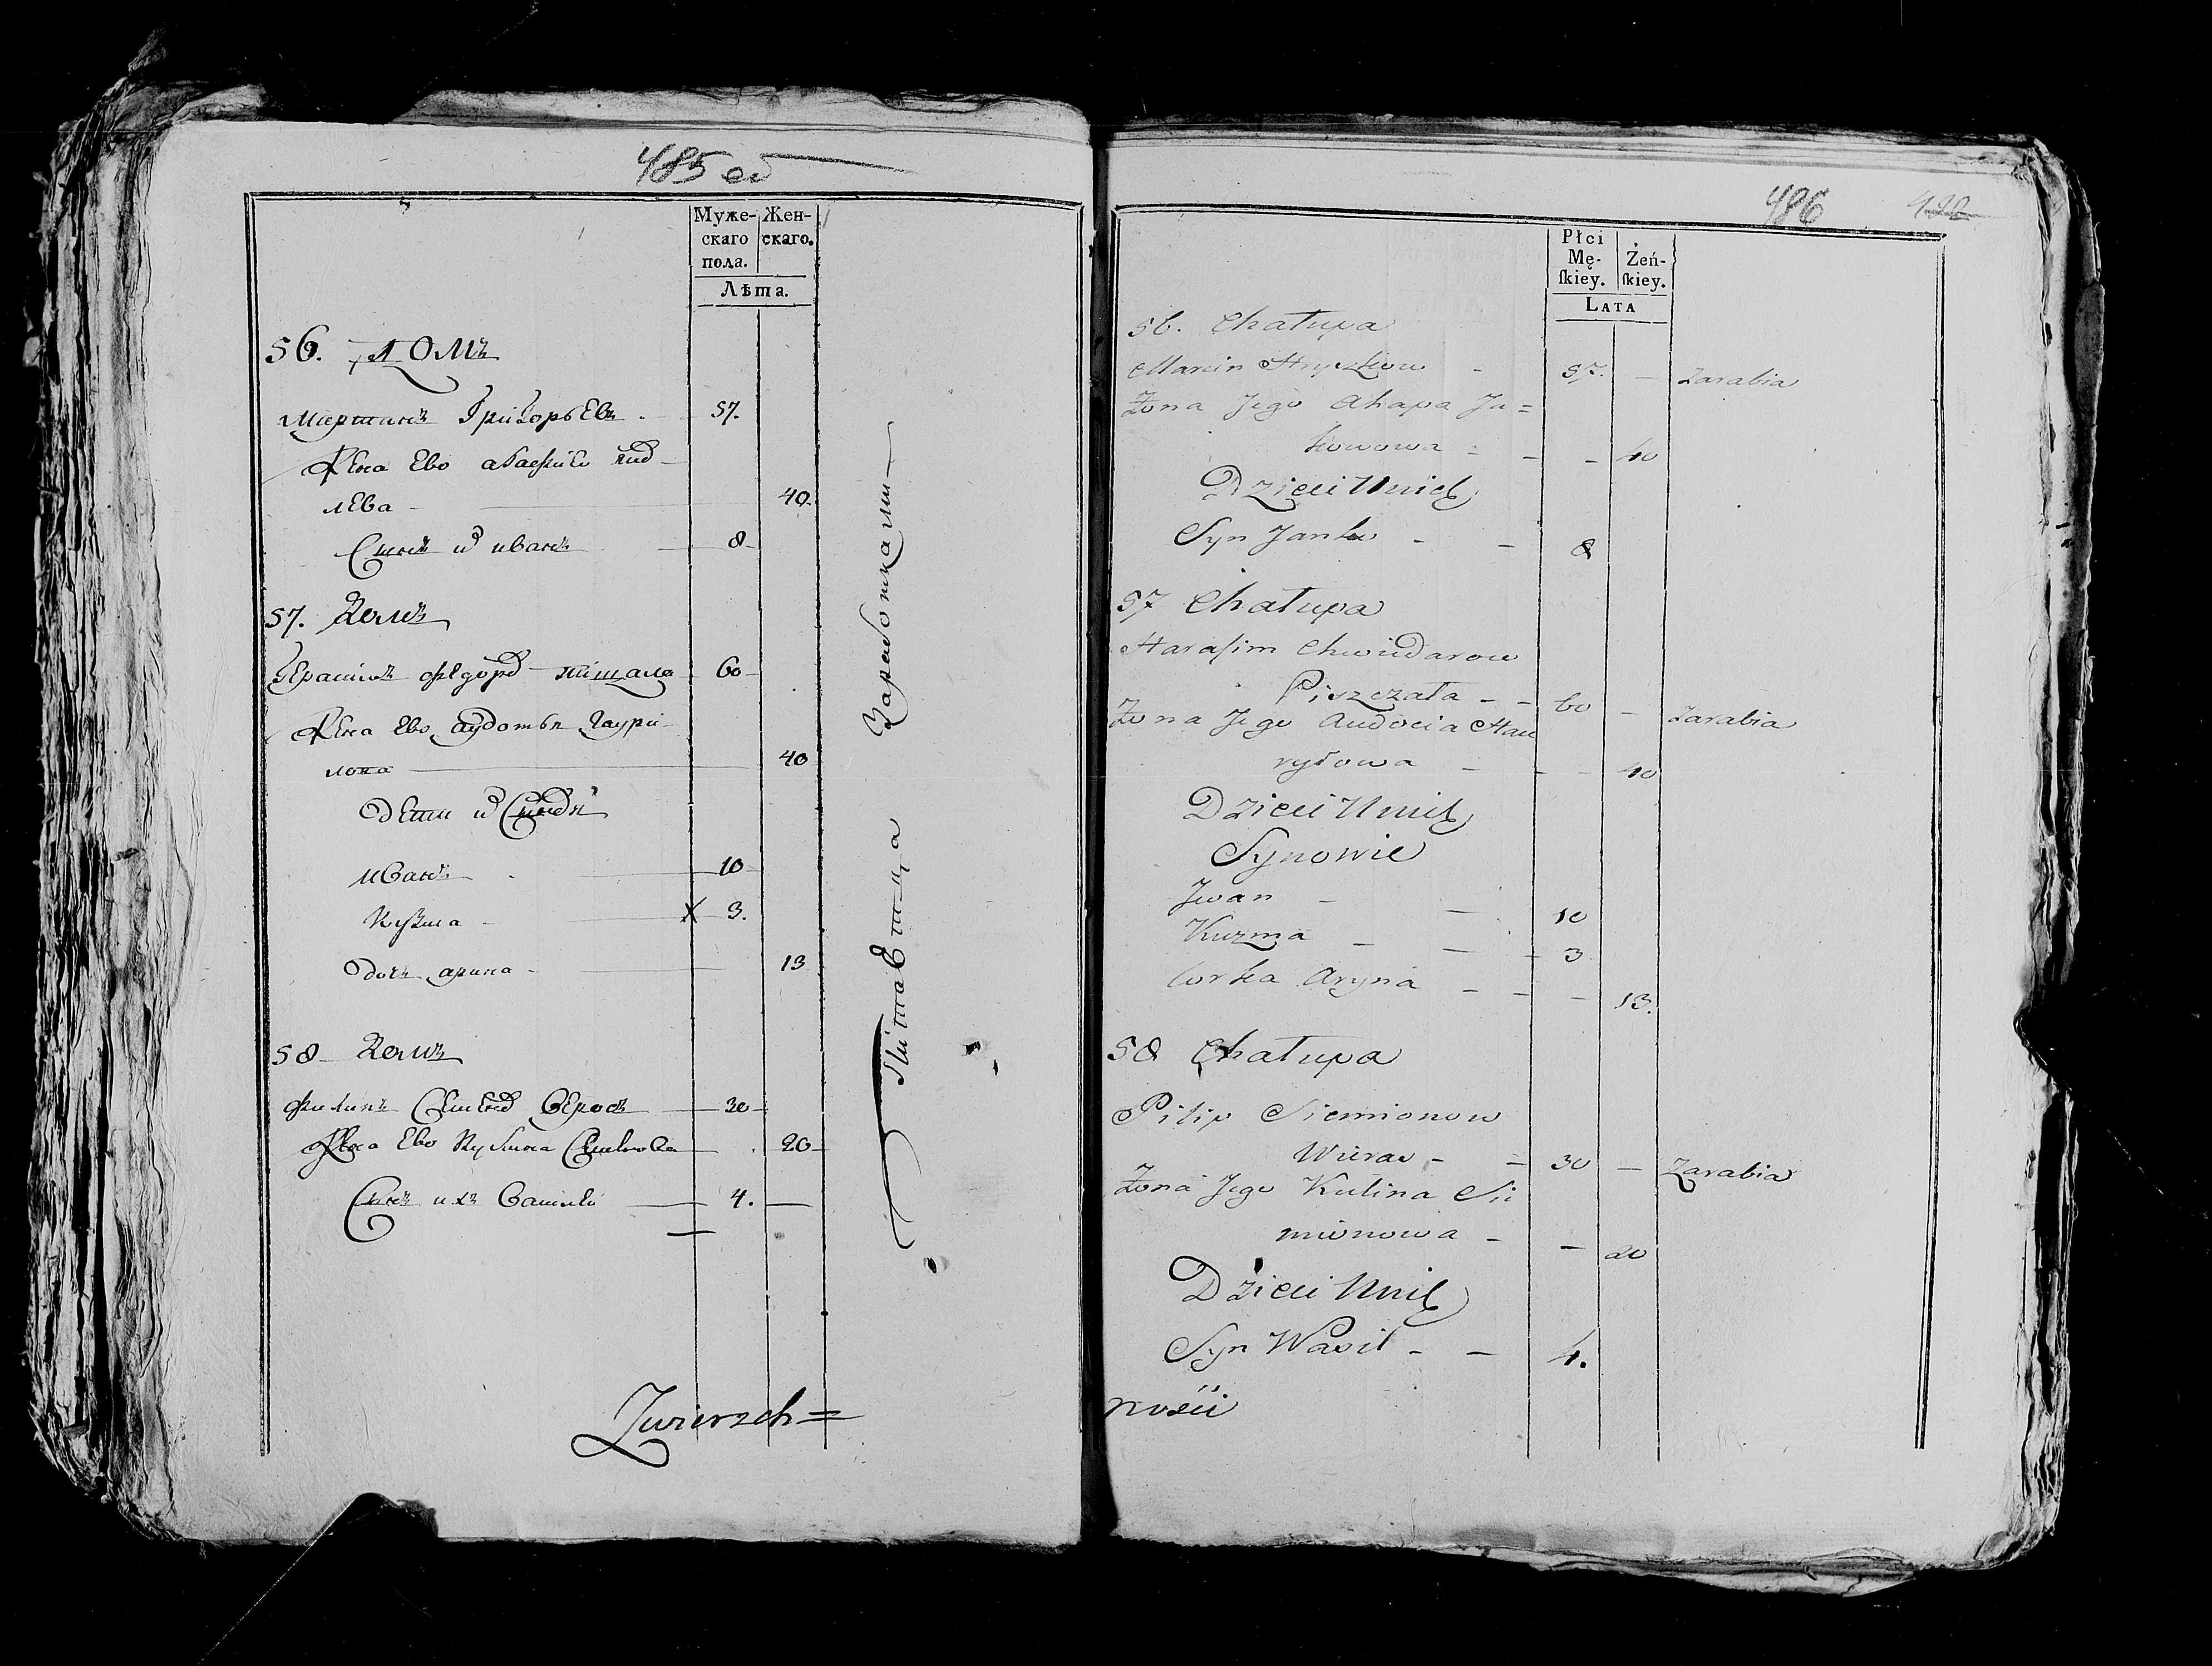 485 об
Муже-
скаго
пола.
Жен-
скаго.
Лѣта.
56. Домъ
Мартинъ Григорьевъ 57.
Жена Ево
лева 40.
Сынъ иванъ 8
57. Домъ
Герасимъ Федоро пищала 60
Жена Ево аудотья Гаури-
лова 40
Дети
иванъ 10
Кузма X 3.
Дочь арина 13
58 Домъ
Филипъ Верасъ 30
Жена Ево Кулина Семенова 20
Сынъ ихъ Василей 4.
Питаетца Заработками
Zwierzch=
486
Płci
Mę-
ſkiey.
Żeń-
ſkiey.
LATA
56. Chałupa
Marcin Hryszkow 57. Zarabia
Żona Jego Ahapa Ja=
kowowa 40
Dzieci Unich
Syn Janko 8
57 Chałupa
Harasim Chwiedarow
Piszczała 60 Zarabia
Żona Jego Audocia Hau
ryłowa 40
Dzieci Unich
Synowie
Jwan 10
Kuzma 3
Corka Aryna 13.
58 Chałupa
Pilip Siemionow
Wieras 30 Zarabia
Żona Jego Kulina Sie
mionowa 20
Dzieci Unich
Syn Wasil 4.
ności